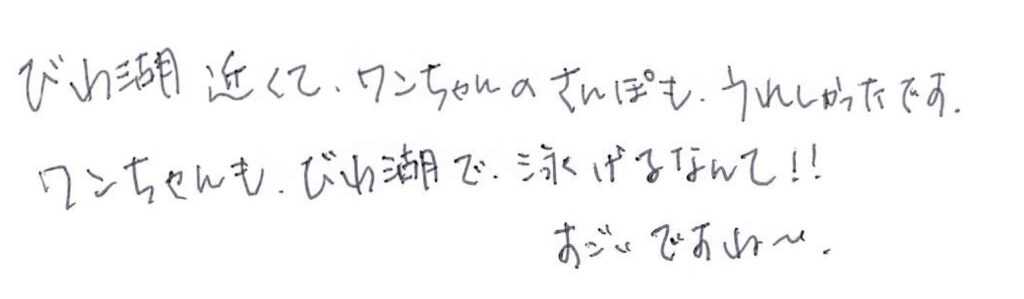 びわ湖近くて、ワンちゃんのさんぽも、うれしかったです.
ワンちゃんも、びわ湖で、泳げるなんて!!
すごいですね〜.